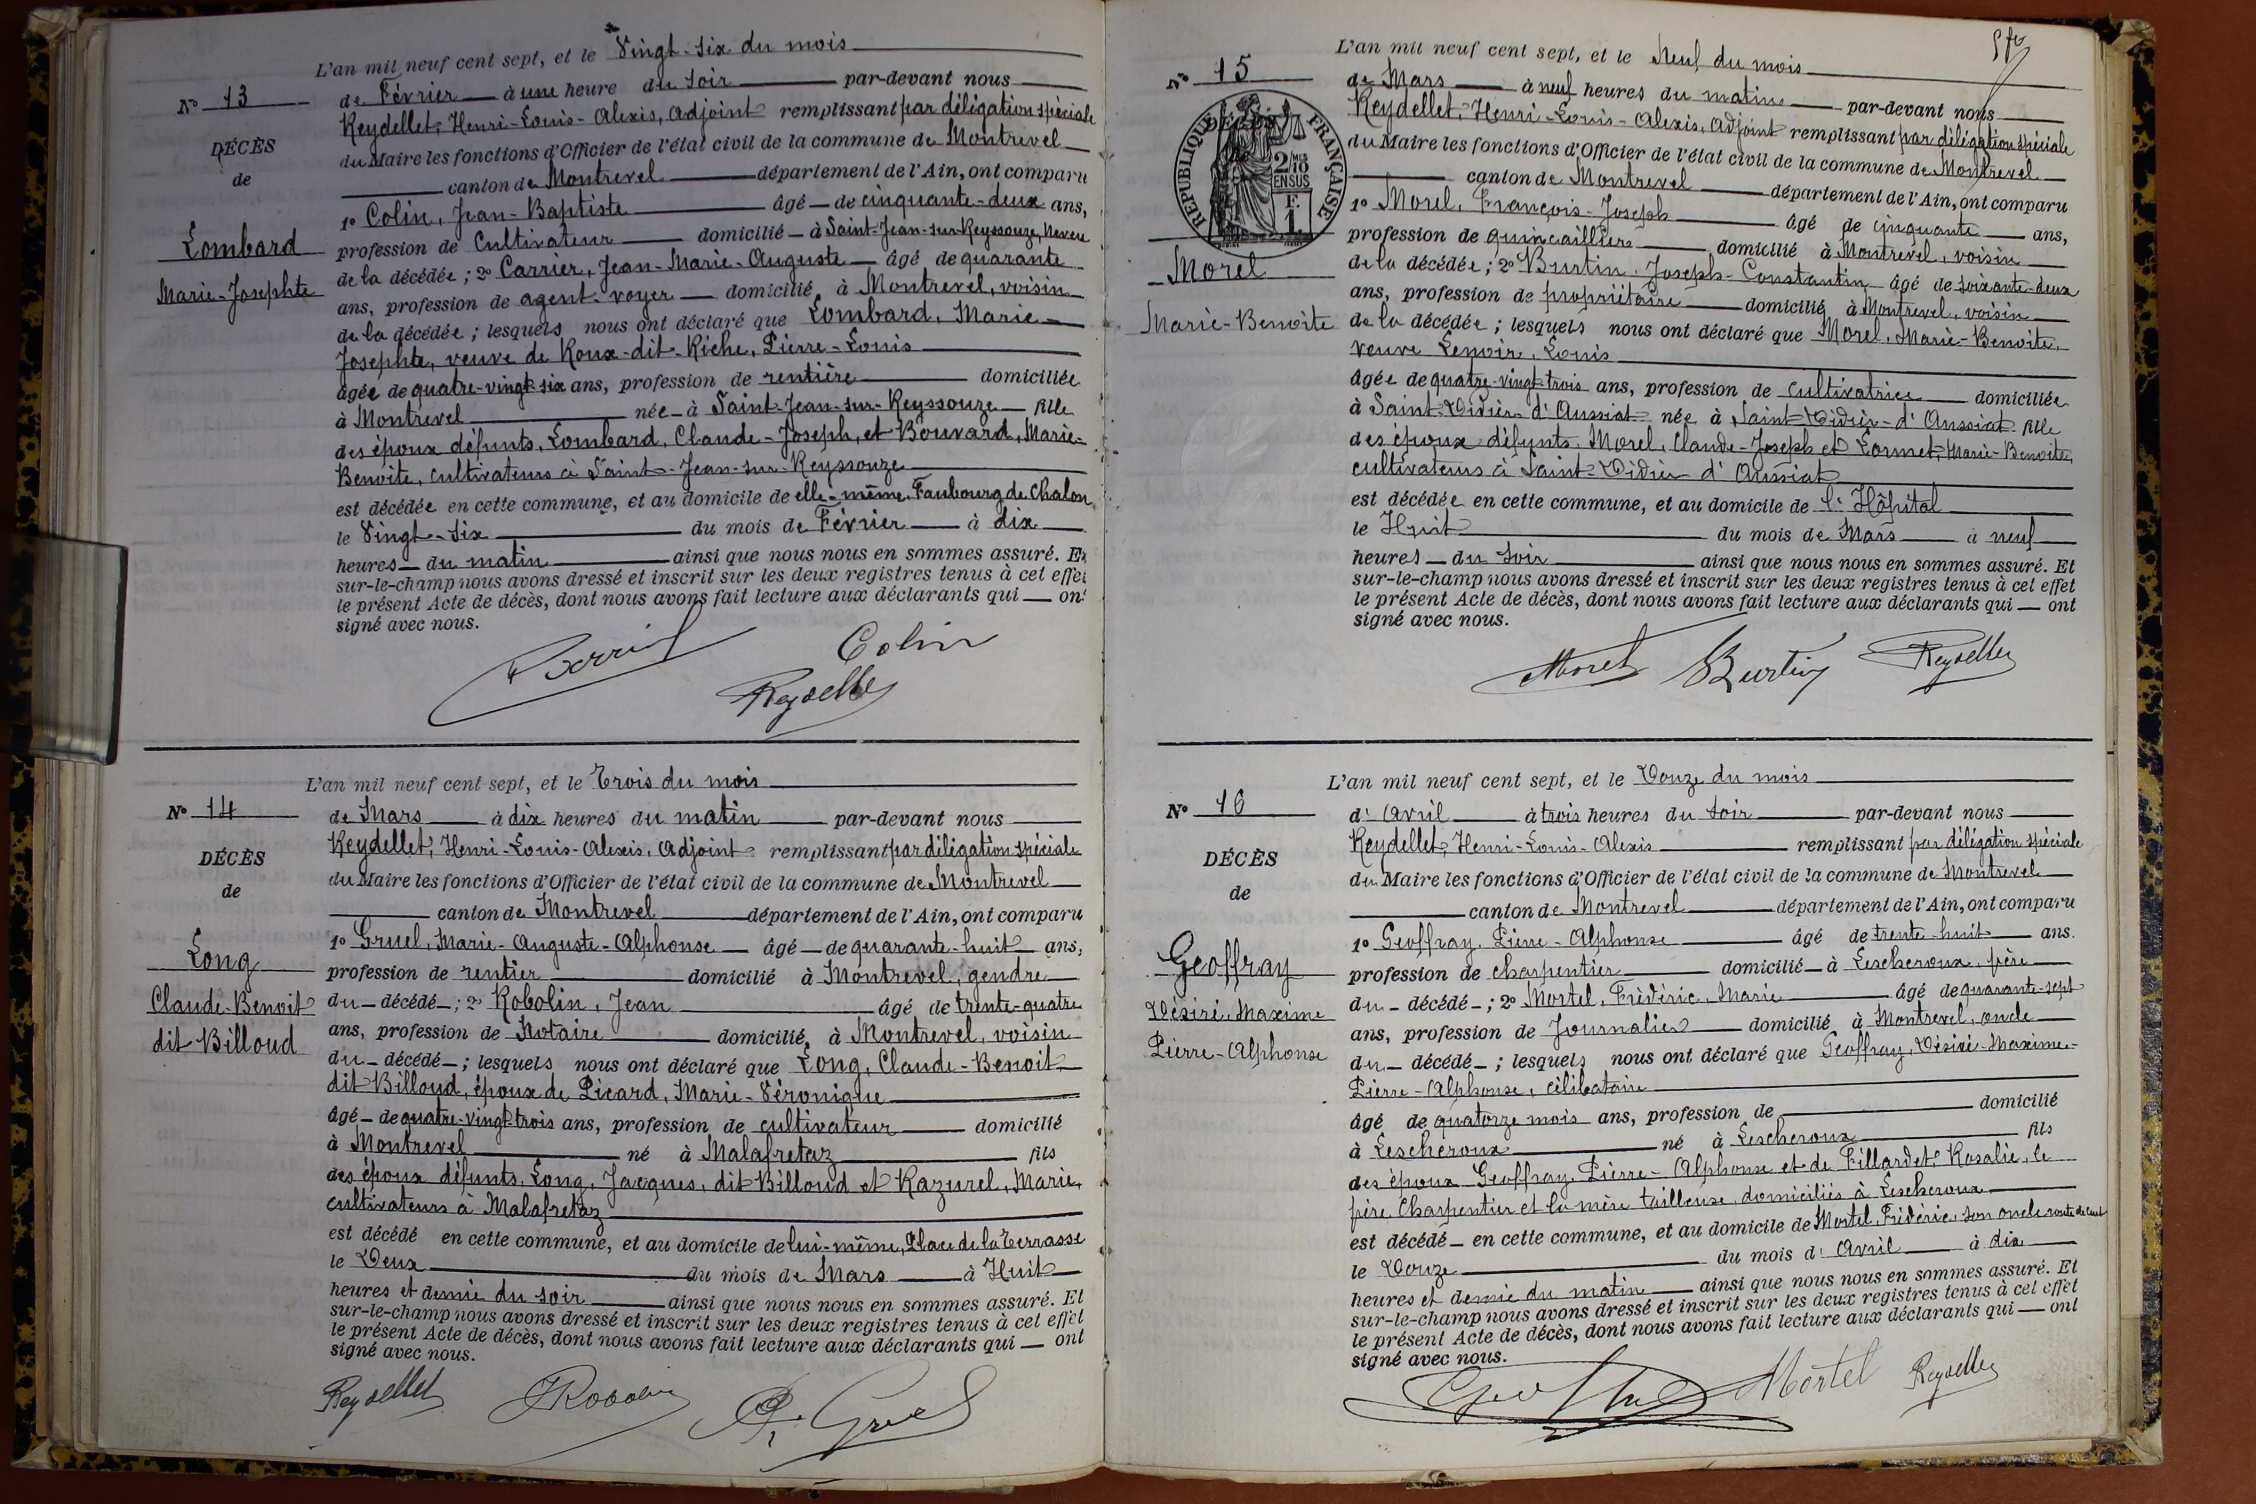 L'an mil neuf cent sept, et le Vingt-six du mois
N° 13
de Février à une heure du soir par-devant nous
Reydellet, Henri-Louis-Alexis, adjoint remplissant par délégation spéciale
DÉCÈS
du Maire les fonctions d'Officier de l'état civil de la commune de Montrevel
de
canton de Montrevel département de l'Ain, ont comparu
1° Colin, Jean-Baptiste âgé de cinquante-deux ans,
Lombard
profession de Cultivateur domicilié à Saint-Jean-sur-Reyssouze, Neveu
de la décédée; 2° Carrier, Jean-Marie-Auguste âgé de quarante
Marie-Josephte
ans, profession de agent-voyer domicilié à Montrevel, voisin
de la décédée; lesquels nous ont déclaré que Lombard, Marie
Josephte, veuve de Roux-dit-Riche, Pierre-Louis
âgée de quatre-vingt-six ans, profession de rentière domiciliée
à Montrevel née à Saint-Jean-sur-Reyssouze fille
des époux défunts, Lombard, Claude-Joseph, et Bouvard, Marie-
Benoite, cultivateurs à Saint-Jean-sur-Reyssouze
est décédée en cette commune, et au domicile de elle-même, Faubourg de Chalon
le Vingt-six du mois de Février à dix
heures du matin ainsi que nous nous en sommes assuré. Et
sur-le-champ nous avons dressé et inscrit sur les deux registres tenus à cet effet
le présent Acte de décès, dont nous avons fait lecture aux déclarants qui ont
signé avec nous.
Carrier Colin
Reydellet
L'an mil neuf cent sept, et le Trois du mois
N° 14
de Mars à dix heures du matin par-devant nous
Reydellet, Henri-Louis-Alexis, adjoint remplissant par délégation spéciale
DÉCÈS
du Maire les fonctions d'Officier de l'état civil de la commune de Montrevel
de
canton de Montrevel département de l'Ain, ont comparu
1° Gruel, Marie-Auguste-Alphonse âgé de quarante-huit ans,
Long
profession de rentier domicilié à Montrevel, gendre
Claude-Benoit
du décédé; 2° Robolin, Jean âgé de trente-quatre
ans, profession de Notaire domicilié à Montrevel, voisin
dit Billoud
du décédé; lesquels nous ont déclaré que Long, Claude-Benoit
dit Billoud, époux de Picard, Marie-Véronique
âgé de quatre-vingt-trois ans, profession de cultivateur domicilié
à Montrevel né à Malafretaz fils
des époux défunts, Long, Jacques, dit Billoud et Razurel, Marie,
cultivateurs à Malafretaz
est décédé en cette commune, et au domicile de lui-même, Place de la Terrasse
le Deux du mois de Mars à Huit
heures et demie du soir ainsi que nous nous en sommes assuré. Et
sur-le-champ nous avons dressé et inscrit sur les deux registres tenus à cet effet
le présent Acte de décès, dont nous avons fait lecture aux déclarants qui ont
signé avec nous.
Reydellet JRobolin Gruel
L'an mil neuf cent sept, et le Neuf du mois
N° 15
de Mars à neuf heures du matin par-devant nous
Reydellet, Henri-Louis-Alexis, adjoint remplissant par délégation spéciale
DÉCÈS
RÉPUBLIQUE FRANÇAISE
2/10 MES
EN SUS
F.
1
du Maire les fonctions d'Officier de l'état civil de la commune de Montrevel
canton de Montrevel département de l'Ain, ont comparu
1° Morel, François-Joseph âgé de cinquante ans,
profession de quincaillier domicilié à Montrevel, voisin
Morel
de la décédée; 2° Burtin, Joseph-Constantin âgé de soixante-deux
ans, profession de propriétaire domicilié à Montrevel, voisin
Marie-Benoite
de la décédée; lesquels nous ont déclaré que Morel, Marie-Benoite,
veuve Lenoir, Louis
âgée de quatre-vingt-trois ans, profession de cultivatrice domiciliée
à Saint-Didier-d'Aussiat née à Saint-Didier-d'Aussiat fille
des époux défunts, Morel, Claude-Joseph et Lornet, Marie-Benoite,
cultivateurs à Saint-Didier d'Aussiat
est décédée en cette commune, et au domicile de l'Hôpital
le Huit du mois de Mars à neuf
heures du soir ainsi que nous nous en sommes assuré. Et
sur-le-champ nous avons dressé et inscrit sur les deux registres tenus à cet effet
le présent Acte de décès, dont nous avons fait lecture aux déclarants qui ont
signé avec nous.
Morel Burtin Reydellet
L'an mil neuf cent sept, et le Douze du mois
N° 16
d'Avril à trois heures du soir par-devant nous
Reydellet, Henri-Louis-Alexis remplissant par délégation spéciale
DÉCÈS
du Maire les fonctions d'Officier de l'état civil de la commune de Montrevel
de
canton de Montrevel département de l'Ain, ont comparu
1° Geoffray, Pierre-Alphonse âgé de trente-huit ans.
Geoffray
profession de charpentier domicilié à Lescheroux, père
Désiré-Maxime
du décédé; 2° Mortel, Frédéric, Marie âgé de quarante-sept
ans, profession de Journalier domicilié à Montrevel, oncle
Pierre-Alphonse
du décédé; lesquels nous ont déclaré que Geoffray, Désiré-Maxime-
Pierre-Alphonse, célibataire
âgé de quatorze mois ans, profession de domicilié
à Lescheroux né à Lescheroux fils
des époux Geoffray, Pierre-Alphonse et de Pillardet, Rosalie, le
père Charpentier et la mère tailleuse, domiciliés à Lescheroux
est décédé en cette commune, et au domicile de Mortel, Frédéric, son oncle route de
le Douze du mois d'Avril à dix
heures et demie du matin ainsi que nous nous en sommes assuré. Et
sur-le-champ nous avons dressé et inscrit sur les deux registres tenus à cet effet
le présent Acte de décès, dont nous avons fait lecture aux déclarants qui ont
signé avec nous.
Geoffray Mortel Reydellet